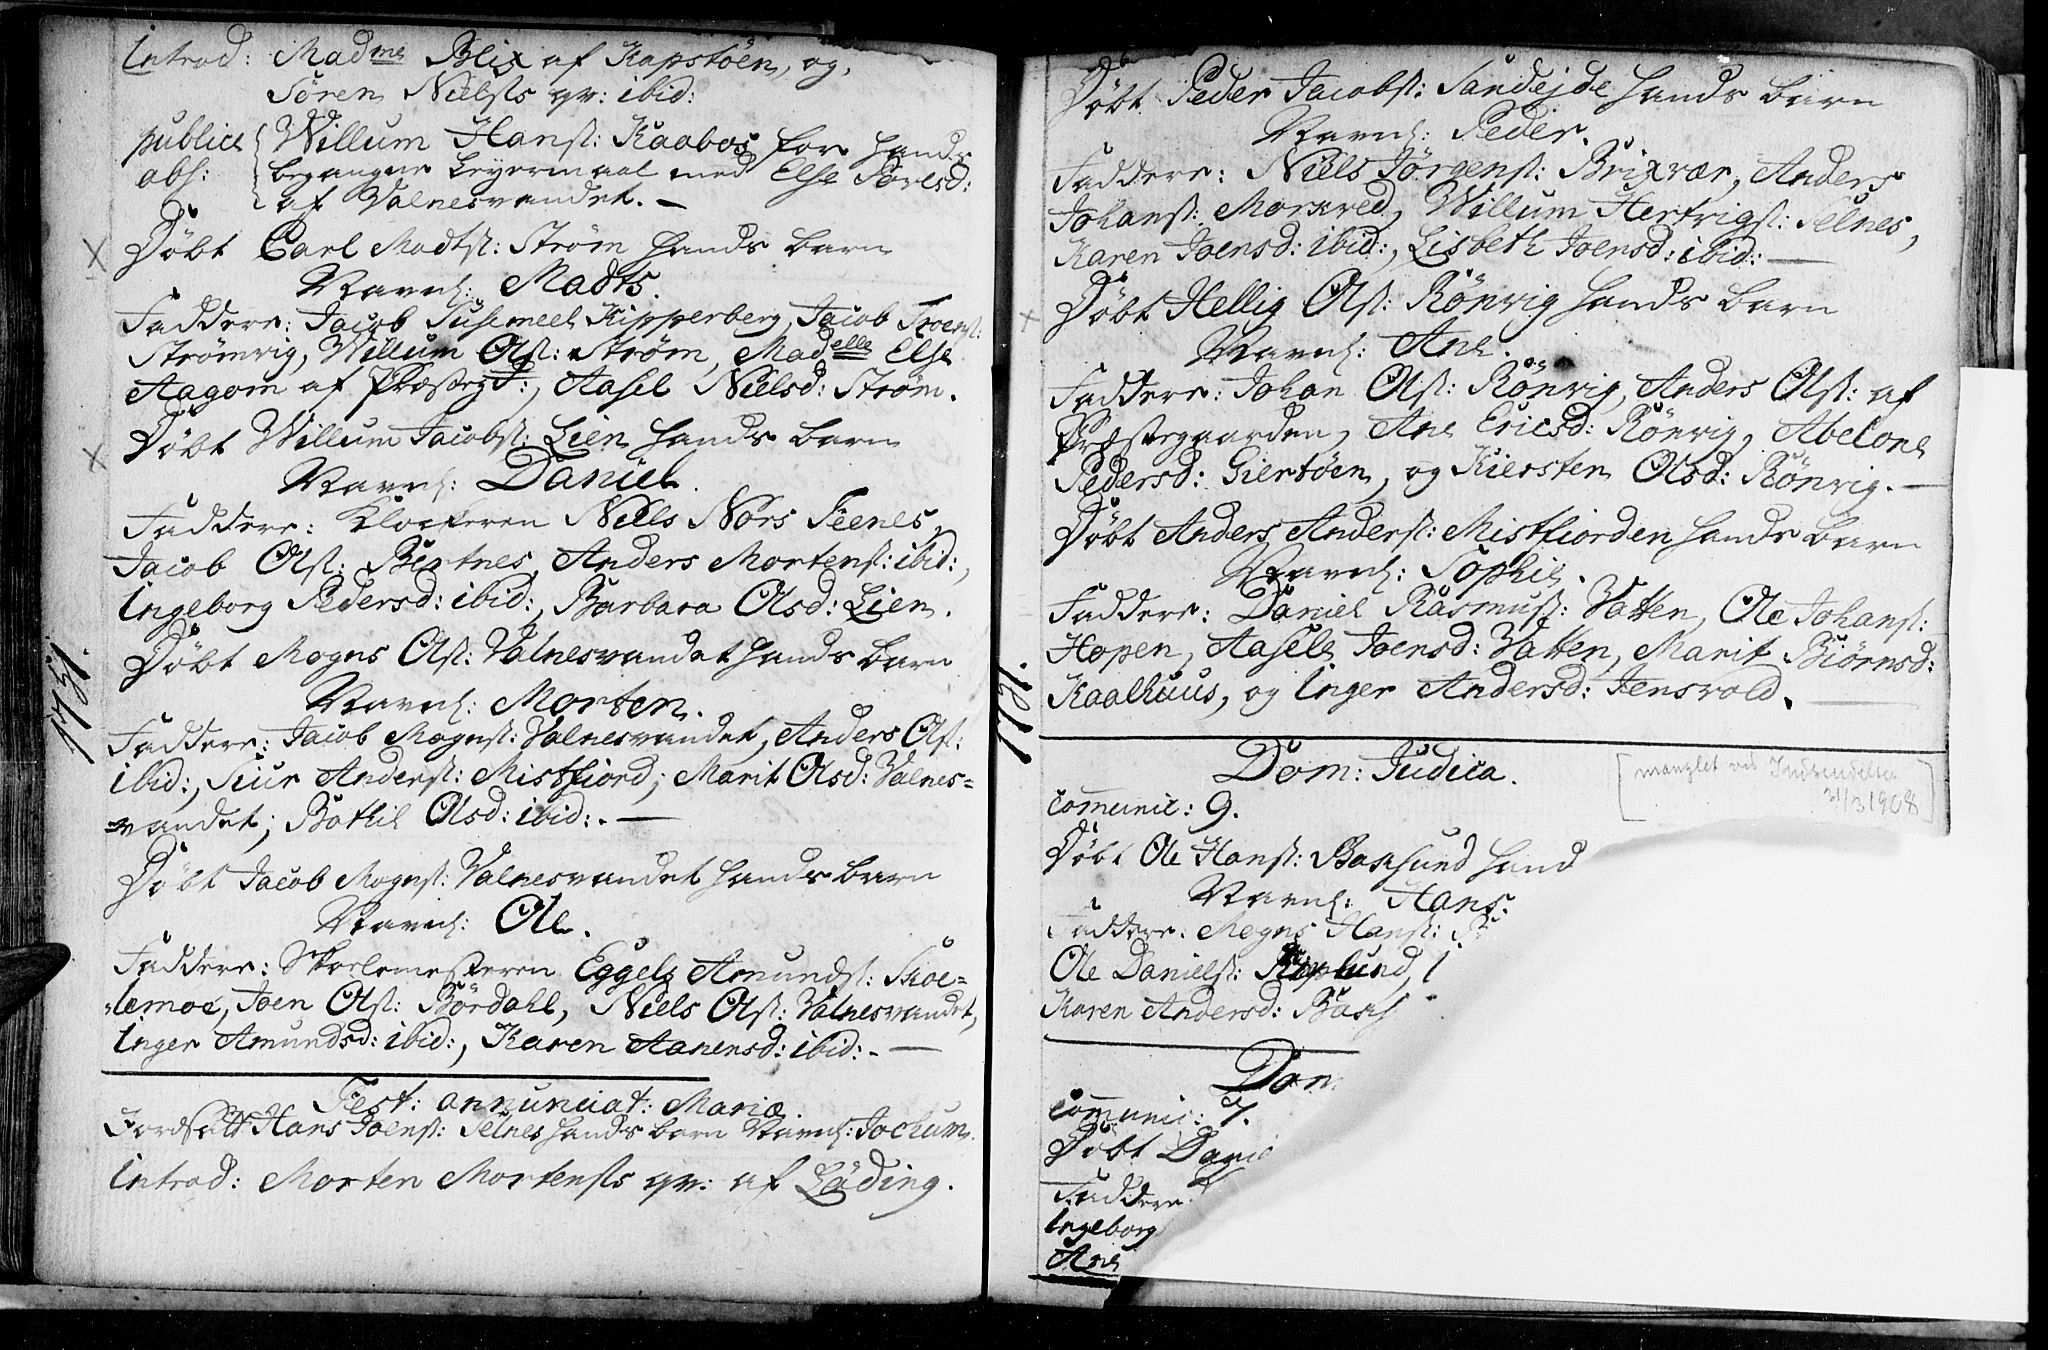 Introd: Mad<sup>me</sup> Blix af Kapstöen, og,
Sören Nielsts qv: ibid:
publicè Willum Hanst: Kaabos for hands
abs: begangne Leyermaal med Else Povelsd:
af Valnesvandet. —
Döbt Carl Madtst: Ström hands barn
Navnl: Madts.
Faddere: Jacob Kipperberg, Jacob
Strömvig, Willum Olst: Ström, Mad<sup>elle</sup> Else
Aagom af Præsteg:, Aasel Nielsd: Ström.
Döbt Willum Jacobst: Lien hands barn
Navnl: Daniel.
Faddere: Klockeren Niels Nors Seenes,
Jacob Olst: Bertnes, Anders Mortenst: ibid:,
Ingeborg Pedersd: ibid:, Barbara Olsd: Lien.
Döbt Mogns Olst: Valnesvandet hands barn
Navnl: Morten.
Faddere: Jacob Mognst: Valnesvandet, Anders Olst:
ibid:, Siur Anderst: Mistfiord; Marit Olsd: Valnes=
vandet; Bothil Olsd: ibid:. —
1731.
Döbt Jacob Mognst: Valnesvandet hands barn
Navnl: Ole.
Faddere: Skolemesteren Eggels Amundst: Skoe=
=lemoe, Joen Olst: Bördahl, Niels Olst: Valnesvandet,
Inger Amundsd: ibid:, Karen Aanensd: ibid:. —
Fest: annunciat: Mariæ.
Hans Joenst: Selnes hands barn Navnl: Jochum.
Introd: Morten Mortensts qv: af Löding.
Döbt Peder Jacobst: Sandejde hands barn
Navnl: Peder.
Faddere: Niels Jörgenst: Brixvær, Anders
Johanst: Morxved, Willum Hertvigst: Selnes,
Karen Joensd: ibid:, Lisbeth Joensd: ibid: —
Döbt Hellig Olst: Rönvig hands barn
Navnl: Ane.
Faddere: Johan Olst: Rönvig, Anders Olst: af
Præstegaarden, Ane Ericsd: Rönvig, Abelone
Pedersd: Giertöen, og Kiersten Olsd: Rönvig. —
Döbt Anders Anderst: Mistfiorden hands barn
Navnl: Sophie.
Faddere: Daniel Rasmust: Vatten, Ole Johanst:
Hopen, Aasele Joensd: Vatten, Marit Biörnsd:
Kaalhuus, og Inger Andersd: Jensvold. —
1731.
Dom: Judica.
[manglet ved Indsendelsen
31/3 1908]
Communic: 9.
Döbt Ole Hanst: Baxsund hand
Navnl: Hans.
Faddere: Mogns Hanst:
Ole Danielst: I
Karen Andersd: Baxs
Dom
Communic: 7.
Döbt Dani
Faddere:
Ingeborg
Ane